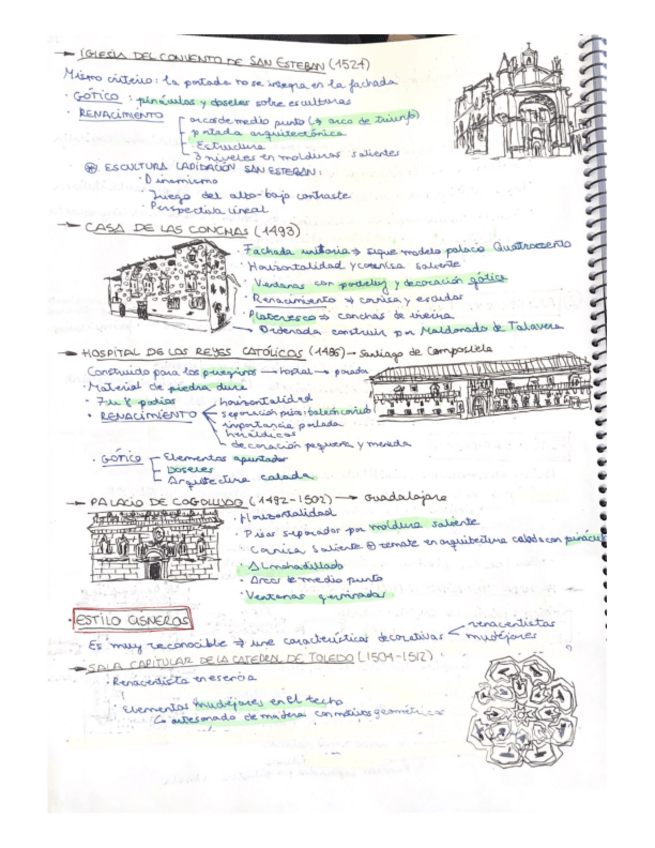 → IGLESIA DEL CONVENTO DE SAN ESTEBAN (1524)
Mismo criterio: la portada no se integra en la fachada
· GÓTICO: pináculos y doseles sobre esculturas
· RENACIMIENTO
arcos de medio punto (→ arco de triunfo)
portada arquitectónica
Estructura
3 niveles en molduras salientes
ESCULTURA LAPIDACIÓN SAN ESTEBAN:
· Dinamismo
· Juego del alto-bajo contraste
· Perspectiva lineal
→ CASA DE LAS CONCHAS (1493)
· Fachada unitaria → sigue modelo palacio Quattrocento
· Horizontalidad y cornisa saliente
· Ventanas con parteluz y decoración gótica
· Renacimiento → cornisa y escudos
· Plateresco → conchas de vieira
→ Ordenada construir por Maldonado de Talavera
→ HOSPITAL DE LOS REYES CATÓLICOS (1486) → Santiago de Compostela
Construido para los peregrinos → hostal → parador
· Material de piedra dura
· 7 u 8 patios
· RENACIMIENTO
horizontalidad
separación pisos: balcón corrido
importancia portada
heráldicos
decoración pequeña y menuda
· GÓTICO
Elementos apuntados
Doseles
Arquitectura calada
→ PALACIO DE COGOLLUDO (1492-1502) → Guadalajara
· Horizontalidad
· Pisos separados por moldura saliente
· Cornisa saliente ⊕ remate en arquitectura calada con pinácul
· Almohadillado
· Arcos de medio punto
· Ventanas geminadas
· ESTILO CISNEROS
Es muy reconocible → une características decorativas
renacentistas
mudéjares
→ SALA CAPITULAR DE LA CATEDRAL DE TOLEDO (1504-1512)
· Renacentista en esencia
· Elementos mudéjares en el techo
↳ artesonado de madera con motivos geométricos